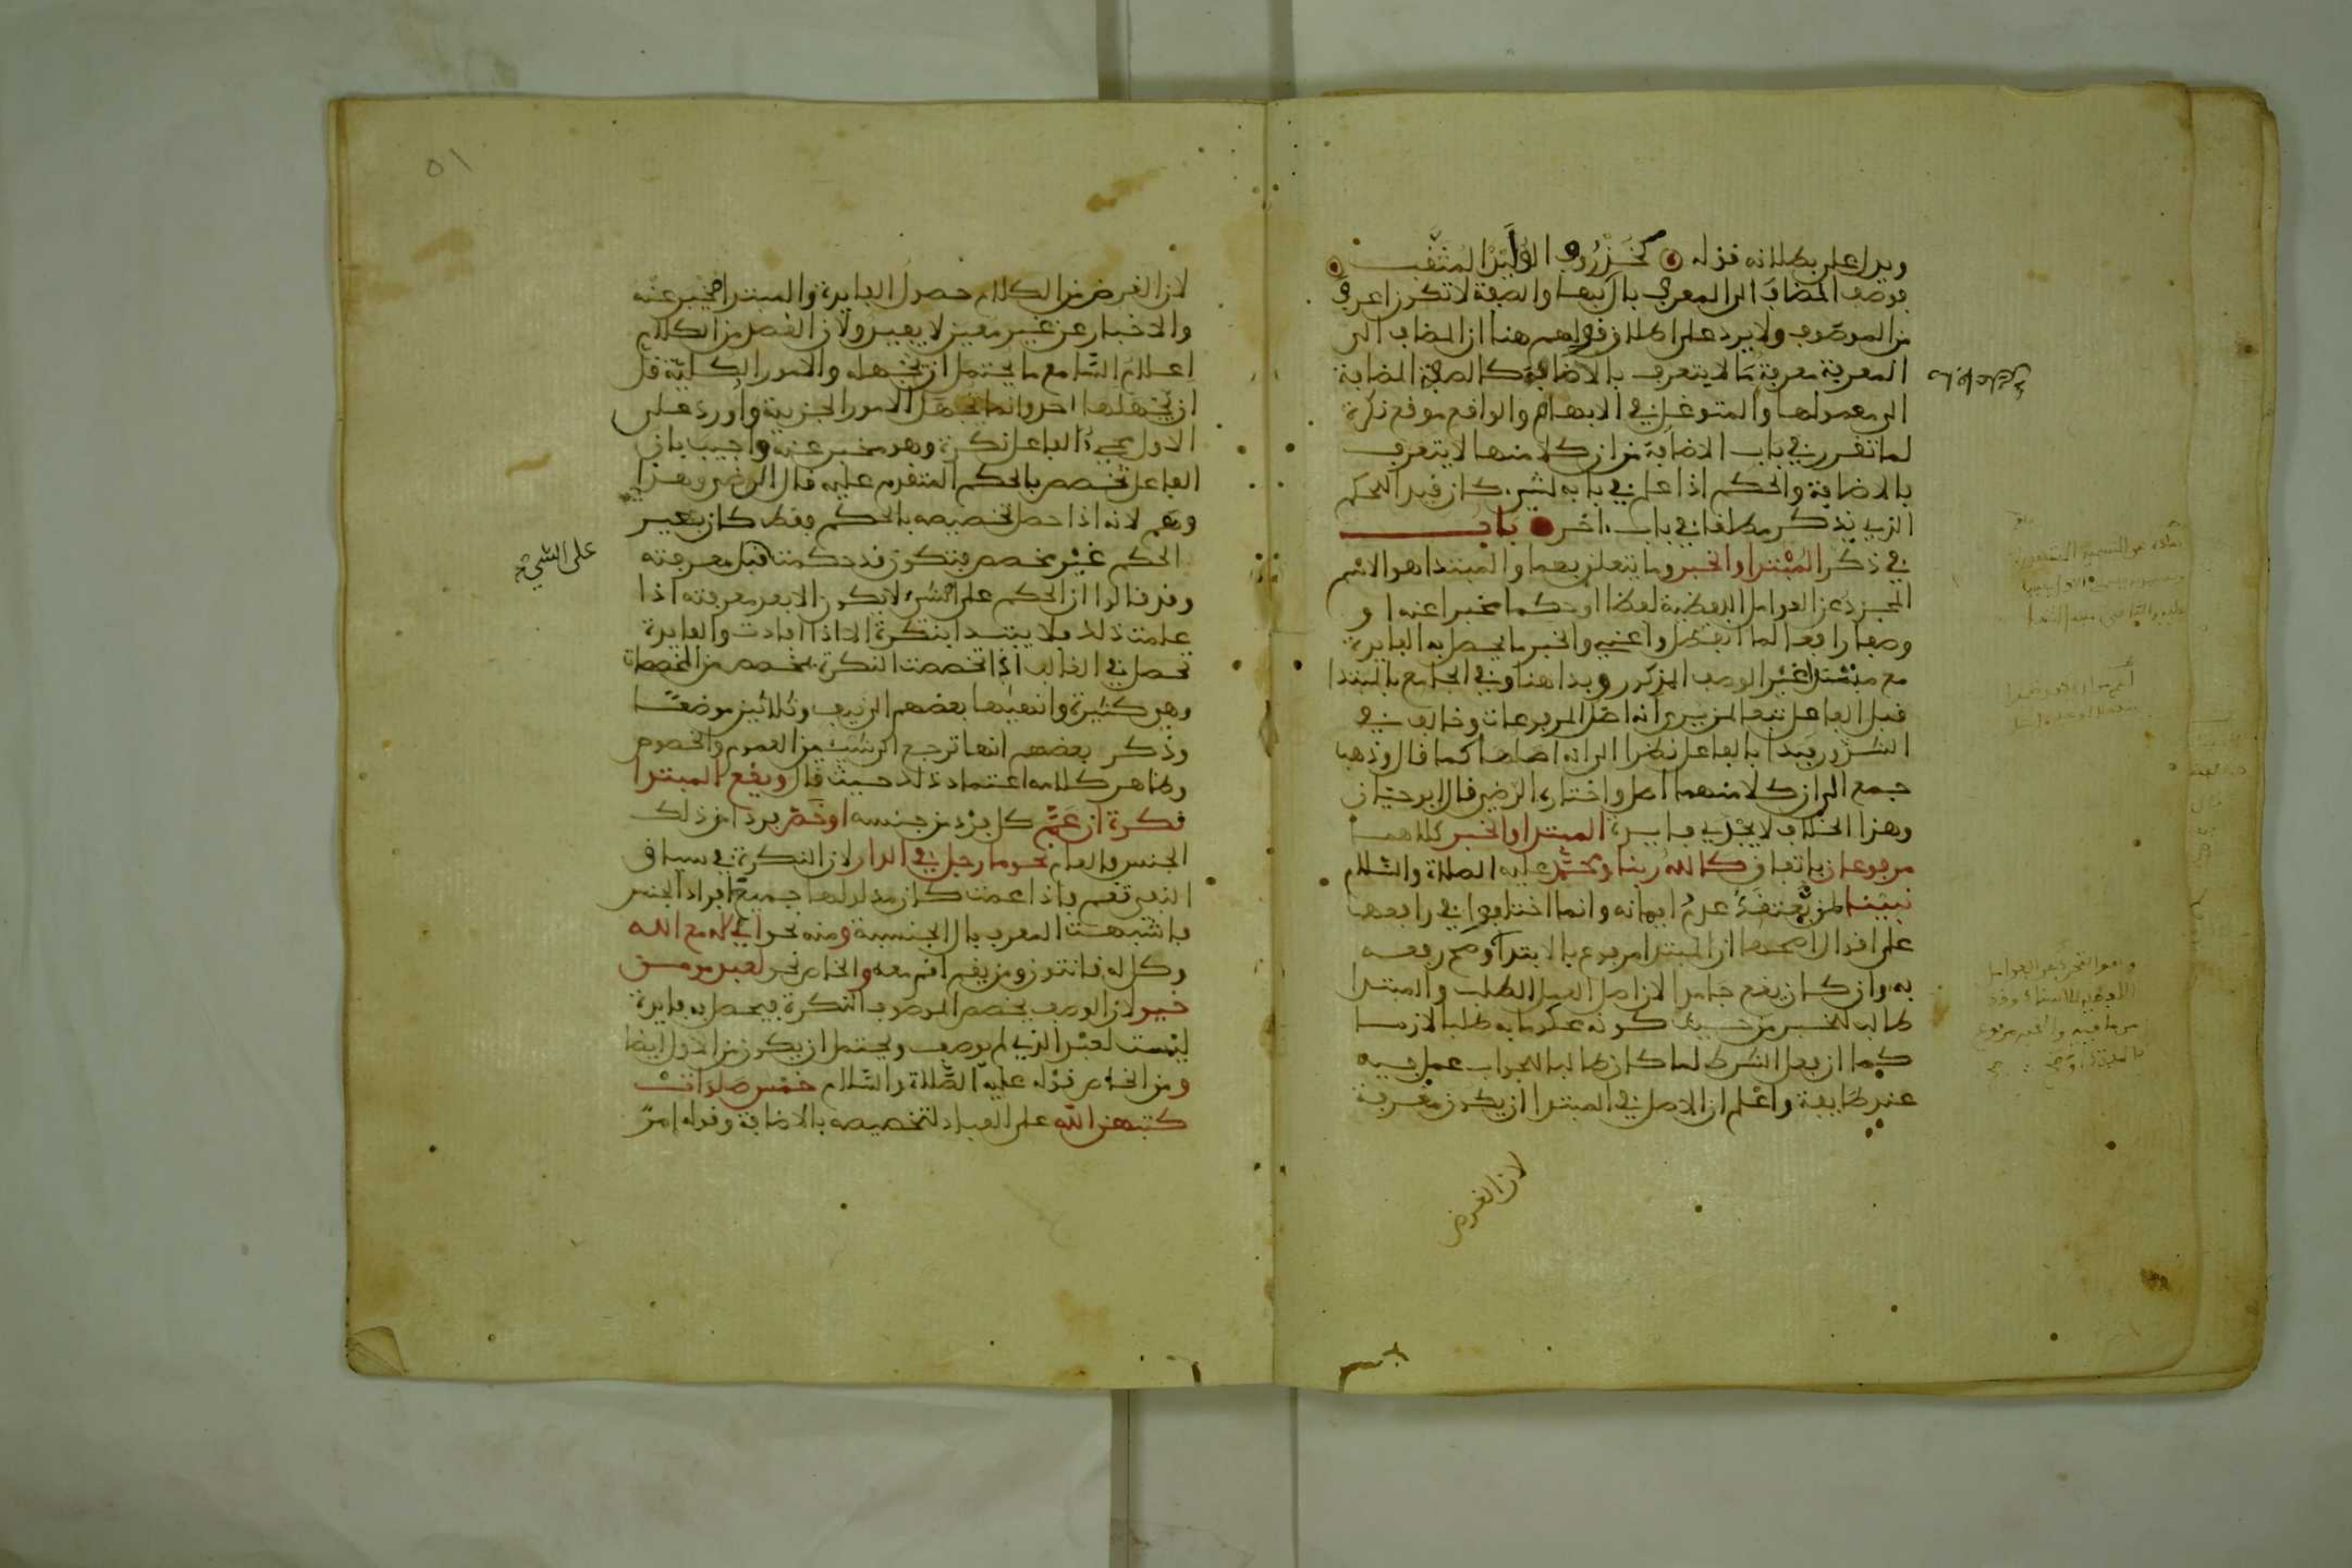 ويدل على بطلانه قوله كخذروف الوليد المثقب
فوصف المضاف الى المعرف بال بها والصفة لا تكون اعرف
من الموصوف ولا يرد على اطلاق قولهم هنا ان المضاف الى
المعرفة معرفة ما لا يتعرف بالاضافة كالصفة المضافة
الى معمولها والمتوغل في الابهام والواقع موقع نكرة
لما تقرر في باب الاضافة من ان كلا منها لا يتعرف
بالاضافة والحكم اذا علم في بابه لشيء كان قيدا للحكم
الذي يذكر مطلقا في باب اخر باب
في ذكر المبتدا والخبر وما يتعلق بهما والمبتدا هو الاسم
المجرد عن العوامل اللفظية لفظا او حكما مخبرا عنه او
وصفا رافعا لما انفصل واغنى والخبر ما يحصل به الفايدة
مع مبتدا غير الوصف المذكور وبدا هنا وفي الجامع بالمبتدا
قبل الفاعل تبعا لمن يرى انه اصل المرفوعات وخالف في
الشذور فبدا بالفاعل نظرا الى انه اصلها كما قال وذهب
جمع الى ان كلا منهما اصل واختاره الرضي قال ابو حيان
وهذا الخلاف لا يجدي فايدة المبتدا والخبر كلاهما
مرفوعان باتفاق كالله ربنا ومحمد عليه الصلاة والسلام
نبينا لمن يعتقد عدم ايهانه وانما اختلفوا في رافعهما
على اقوال اصحها ان المبتدا مرفوع بالابتدا وصح رفعه
به وان كان يقع جامدا لان اصل العمل الطلب والمبتدا
طالب للخبر من حيث كونه محكوما به طلبا لازما
كما ان فعل الشرط لما كان طالبا للجواب عمل فيه
عند طايفة واعلم ان الاصل في المبتدا ان يكون معرفة
لان الغرض
لان الغرض من الكلام حصول الفايدة والمبتدا مخبر عنه
والاخبار عن غير معين لا يفيد ولان القصد من الكلام
اعلام السامع ما يحتمل ان يجهله والامور الكلية قل
ان يجهلها احد وانما تجهل الامور الجزيية واورد على
الاول مجيء الفاعل نكرة وهو مخبر عنه واجيب بان
الفاعل تخصص بالحكم المتقدم عليه قال الرضي وهذا
وهم لانه اذا حصل تخصيصه بالحكم فقط كان بغير
الحكم غير مخصص فتكون قد حكمت قبل معرفته
على الشيء
وقد قالوا ان الحكم على الشيء لا يكون الا بعد معرفته اذا
علمت ذلك فلا يبتدا بنكرة الا اذا افادت والفايدة
تحصل في الغالب اذا تخصصت النكرة بمخصص من المخصصات
وهي كثيرة وانهاها بعضهم الى نيف وثلاثين موضعا
وذكر بعضهم انها ترجع الى شيين العموم والخصوص
وظاهر كلامه اعتماد ذلك حيث قال ويقع المبتدا
نكرة ان عم كل فرد من جنسه او خص فردا من ذلك
الجنس فالعام نحو ما رجل في الدار لان النكرة في سياق
النفي تعم فاذا عمت كان مدلولها جميع افراد الجنس
فاشبهت المعرف بال الجنسية ومنه نحو االه مع الله
وكل له قانتون ومن يقم اقم معه والخاص نحو لعبد مومن
خير لان الوصف يخصص الموصوف النكرة فيحصل به فايدة
ليست لعبد الذي لم يوصف ويحتمل ان يكون من الاول ايضا
ومن الخاص قوله عليه الصلاة والسلام خمس صلوات
كتبهن الله على العباد لتخصيصه بالاضافة وقوله امر
٥١